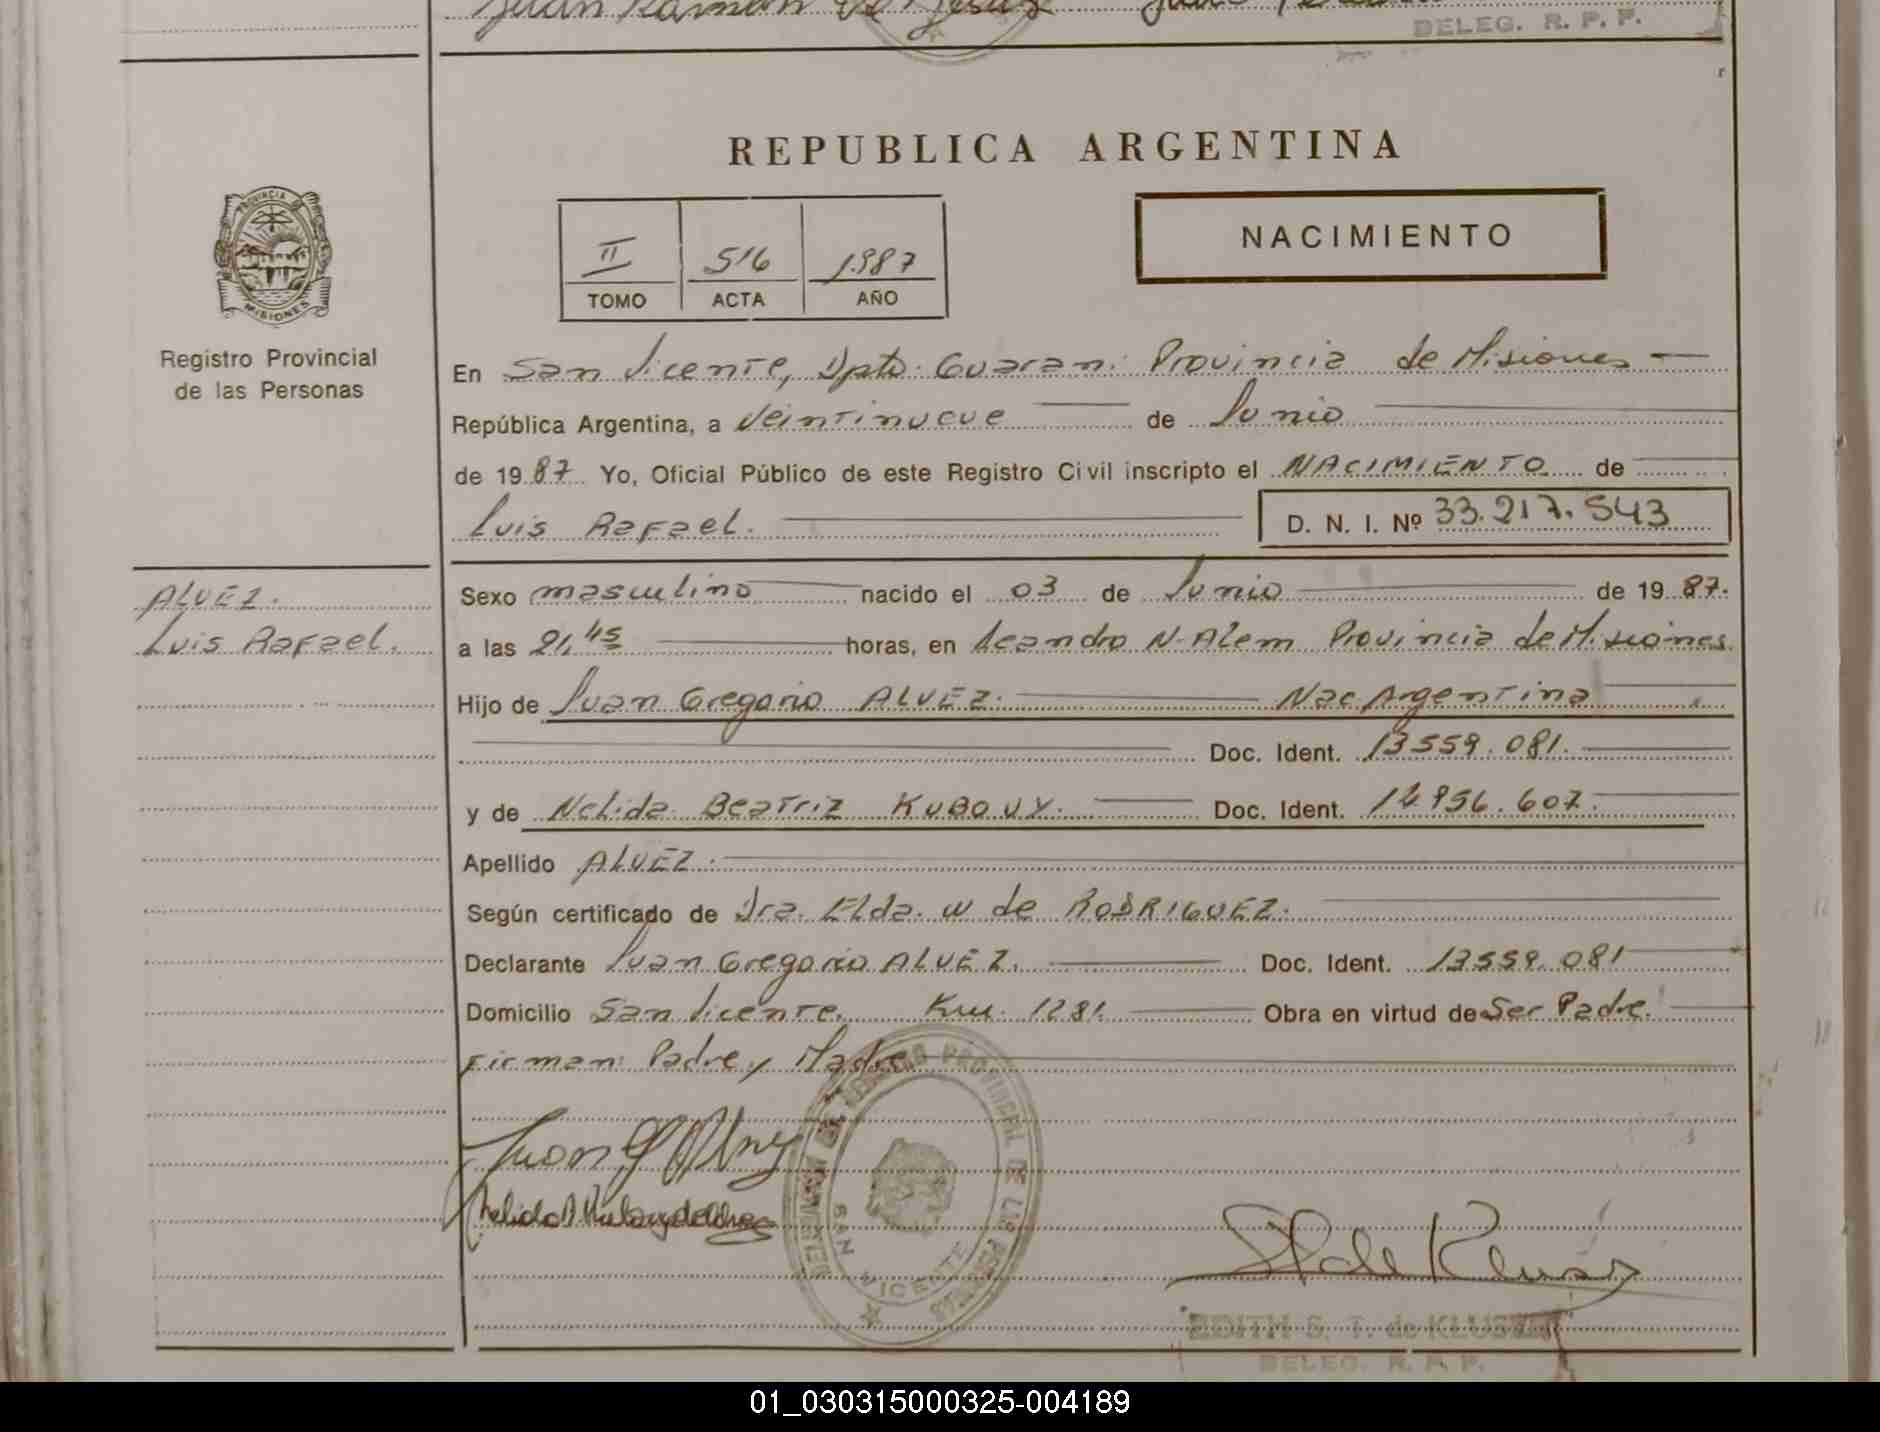 Juan Ramón de Jesús
BELEG. R. P. P.
REPUBLICA ARGENTINA
PROVINCIA
MISIONES
Registro Provincial
de las Personas
II 516 1987
TOMO ACTA AÑO
NACIMIENTO
En San Vicente, Dpto. Guarani Provincia de Misiones
República Argentina, a Veintinueve de Junio
de 1987 Yo, Oficial Público de este Registro Civil inscripto el NACIMIENTO de
Luis Rafael. D. N. I. Nº 33.217.543
ALVEZ.
Luis Rafael.
Sexo masculino nacido el 03 de Junio de 1987.
a las 21,45 horas, en Leandro N. Alem Provincia de Misiones.
Hijo de Juan Gregorio ALVEZ. Nac Argentina
Doc. Ident. 13559.081.
y de Nelida Beatriz KUBOUY. Doc. Ident. 14.956.607.
Apellido ALVEZ.
Según certificado de Dra. Elda. W de RODRIGUEZ.
Declarante Juan Gregorio ALVEZ. Doc. Ident. 13559.081
Domicilio San Vicente. Km. 1281. Obra en virtud de Ser Padre.
Firman: Padre y Madre.
REGISTRO PROVINCIAL DE LAS PERSONAS
SAN VICENTE
EDITH S. T. de KLUSZ
BELEG. R. P. P.
01_030315000325-004189